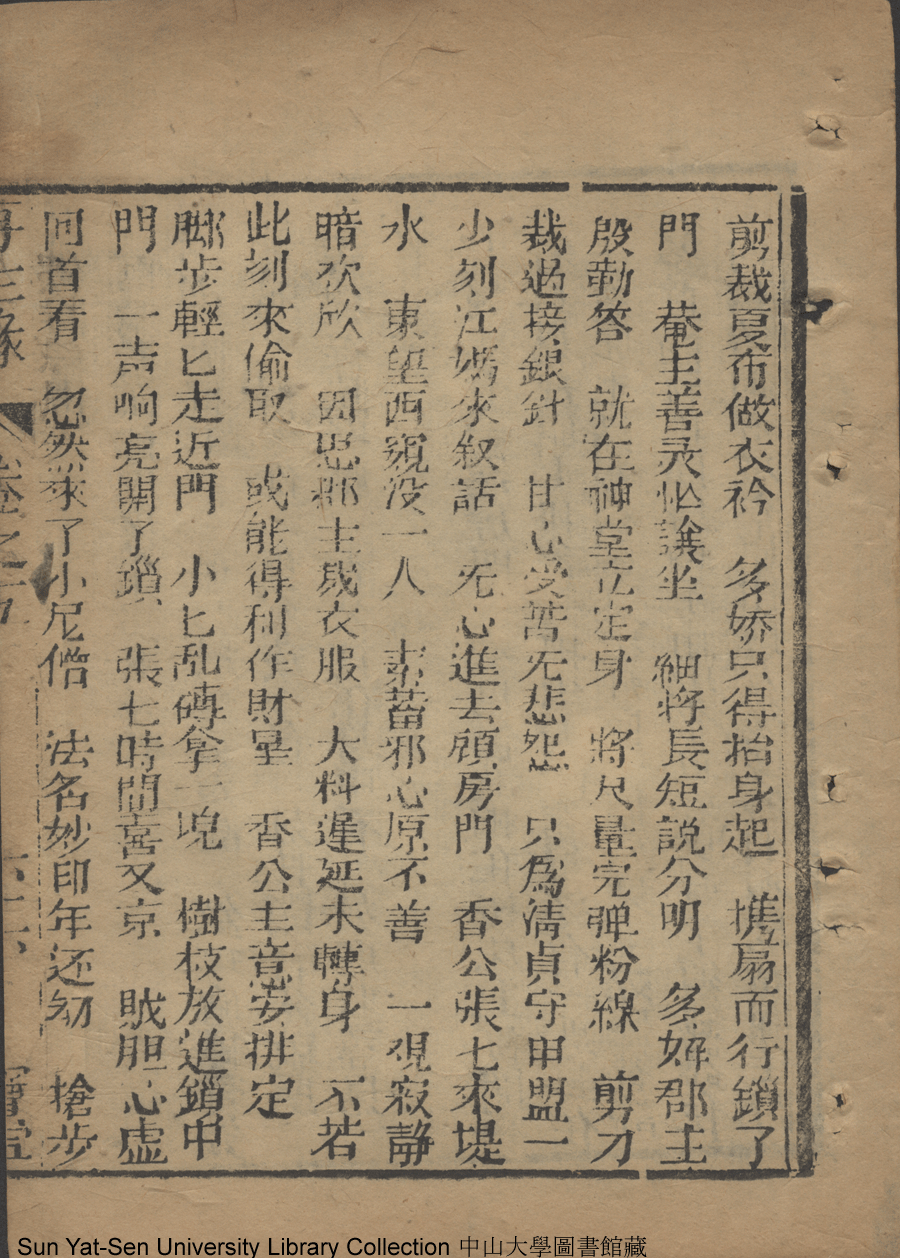 剪裁夏布做衣衿　多娇只得抬身起　携扇而行鎖了
門　菴主善灵忙讓坐　細將長短説分明　多娇郡主
殷勤答　就在神堂立定身　將尺量完弹粉線　剪刀
裁過接銀針　甘心受苦无悲怨　只為清貞守甲盟一
少刻江媽來叙話　无心進去顧房門　香公張七來堤
水　東望西窺没一人　素蓄邪心原不善　一覌寂静
暗欢欣　因思郡主裁衣服　大料遲延未轉身　不若
此刻來偷取　或能得利作財星　香公主意安排定
脚步輕匕走近門　小匕乱磚拿一塊　樹枝放進鎖中
門　一声响亮開了鎖　張七時間喜又京　贼胆心虚
回首看　忽然來了小尼僧　法名妙印年还幼　搶步
再生緣　卷之
Sun Yat-Sen University Library Collection 中山大學圖書館藏